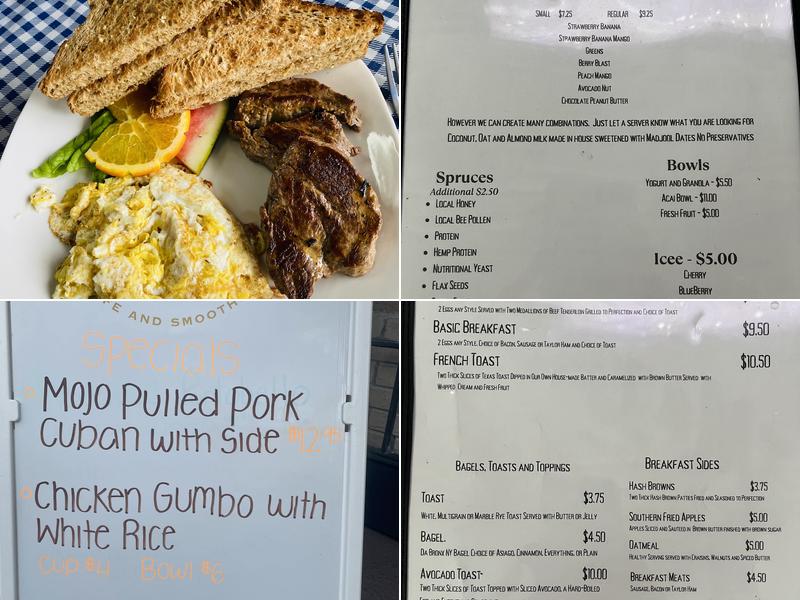 SMALL $7.25 REGULAR $9.25
STRAWBERRY BANANA
STRAWBERRY BANANA MANGO
GREENS
BERRY BLAST
PEACH MANGO
AVOCADO NUT
CHOCOLATE PEANUT BUTTER
HOWEVER WE CAN CREATE MANY COMBINATIONS. JUST LET A SERVER KNOW WHAT YOU ARE LOOKING FOR
COCONUT, OAT AND ALMOND MILK MADE IN HOUSE SWEETENED WITH MADJOOL DATES NO PRESERVATIVES
Spruces
Additional $2.50
• LOCAL HONEY
• LOCAL BEE POLLEN
• PROTEIN
• HEMP PROTEIN
• NUTRITIONAL YEAST
• FLAX SEEDS
Bowls
YOGURT AND GRANOLA - $5.50
ACAI BOWL - $11.00
FRESH FRUIT - $5.00
Icee - $5.00
CHERRY
BLUEBERRY
AND SMOOTH
Specials
Mojo Pulled Pork
Cuban with Side $12.95
Chicken Gumbo with
White Rice
Cup $4 Bowl $6
2 EGGS ANY STYLE SERVED WITH TWO MEDALLIONS OF BEEF TENDERLOIN GRILLED TO PERFECTION AND CHOICE OF TOAST
BASIC BREAKFAST $9.50
2 EGGS ANY STYLE. CHOICE OF BACON, SAUSAGE OR TAYLOR HAM AND CHOICE OF TOAST
FRENCH TOAST $10.50
TWO THICK SLICES OF TEXAS TOAST DIPPED IN OUR OWN HOUSE-MADE BATTER AND CARAMELIZED WITH BROWN BUTTER SERVED WITH
WHIPPED CREAM AND FRESH FRUIT
BAGELS, TOASTS AND TOPPINGS
TOAST $3.75
WHITE, MULTIGRAIN OR MARBLE RYE TOAST SERVED WITH BUTTER OR JELLY
BAGEL. $4.50
DA BRONX NY BAGEL CHOICE OF ASIAGO, CINNAMON, EVERYTHING, OR PLAIN
AVOCADO TOAST- $10.00
TWO THICK SLICES OF TOAST TOPPED WITH SLICED AVOCADO, A HARD-BOILED
BREAKFAST SIDES
HASH BROWNS $3.75
TWO THICK HASH BROWN PATTIES FRIED AND SEASONED TO PERFECTION
SOUTHERN FRIED APPLES $5.00
APPLES SLICED AND SAUTEED IN BROWN BUTTER FINISHED WITH BROWN SUGAR
OATMEAL $5.00
HEALTHY SERVING SERVED WITH CRAISINS, WALNUTS AND SPICED BUTTER
BREAKFAST MEATS $4.50
SAUSAGE, BACON OR TAYLOR HAM